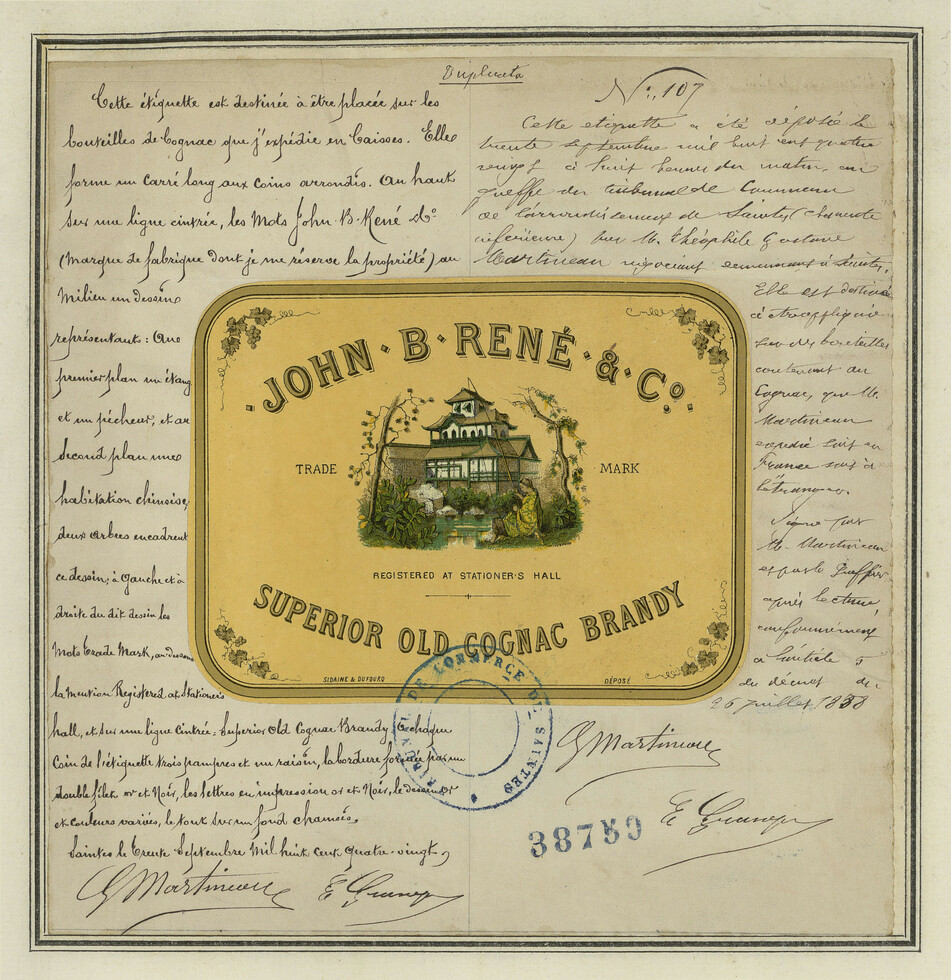 Duplicata
Cette étiquette est destinée à être placée sur les
bouteilles de Cognac que j'expédie en Caisses. Elle
forme un carré long aux coins arrondis. Au haut
sur une ligne cintrée, les Mots John B. René & Co
(Marque de fabrique dont je me réserve la propriété) au
Milieu un dessin
représentant : Au
premier plan un étang
et un pêcheur, et au
Second plan une
habitation chinoise,
deux arbres encadrent
ce dessin; à gauche et à
droite du dit dessin les
Mots Trade Mark, au dessous
la mention Registered at Stationer's
hall, et sur une ligne cintrée: Superior Old Cognac Brandy. à chaque
Coin de l'étiquette trois pampres et un raisin, la bordure formée par un
double filet or et Noir, les lettres en impression or et Noir, le dessin or
et couleurs variées, le tout sur un fond chamois.
Saintes le trente Septembre Mil huit cent quatre-vingt,
G Martineau
No. 107
Cette étiquette a été déposée le
trente septembre mil huit cent quatre
vingt à huit heures du matin, au
greffe du tribunal de Commerce
de l'arrondissement de Saintes (charente
inférieure) par M. Théophile Gustave
Martineau négociant demeurant à Saintes.
Elle est destinée
à être appliquée
sur des bouteilles
contenant du
Cognac, que M.
Martineau
expédie soit en
France soit à
l'étranger.
Signé par
M. Martineau
et par le Greffier
après lecture,
conformément
à l'article 5
du décret du
26 juillet 1858
G Martineau
JOHN · B · RENÉ · & · Co.
TRADE MARK
REGISTERED AT STATIONER'S HALL
SUPERIOR OLD COGNAC BRANDY
SIDAINE & DUFOURQ
DÉPOSÉ
TRIBUNAL DE COMMERCE DE SAINTES
38759